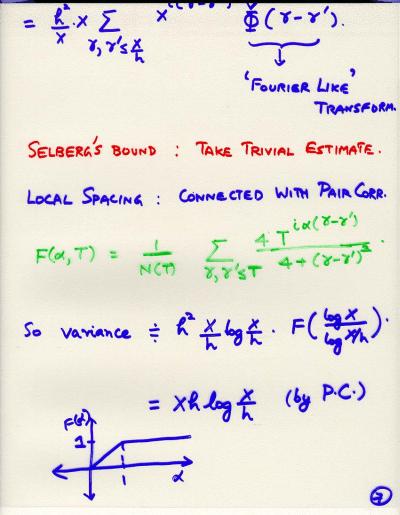 = h²/x · x ∑ x^{i(γ-γ')} Φ̂(γ-γ').
γ, γ' ≤ x/h
'FOURIER LIKE'
TRANSFORM.
SELBERG'S BOUND : TAKE TRIVIAL ESTIMATE.
LOCAL SPACING : CONNECTED WITH PAIR CORR.
F(α,T) = 1/N(T) ∑_{γ,γ'≤T} 4T^{iα(γ-γ')}/4+(γ-γ')².
So variance ≑ h² x/h log x/h · F(log x/log x/h).
= xh log x/h (by P.C.)
F(α)
1
1 α
7